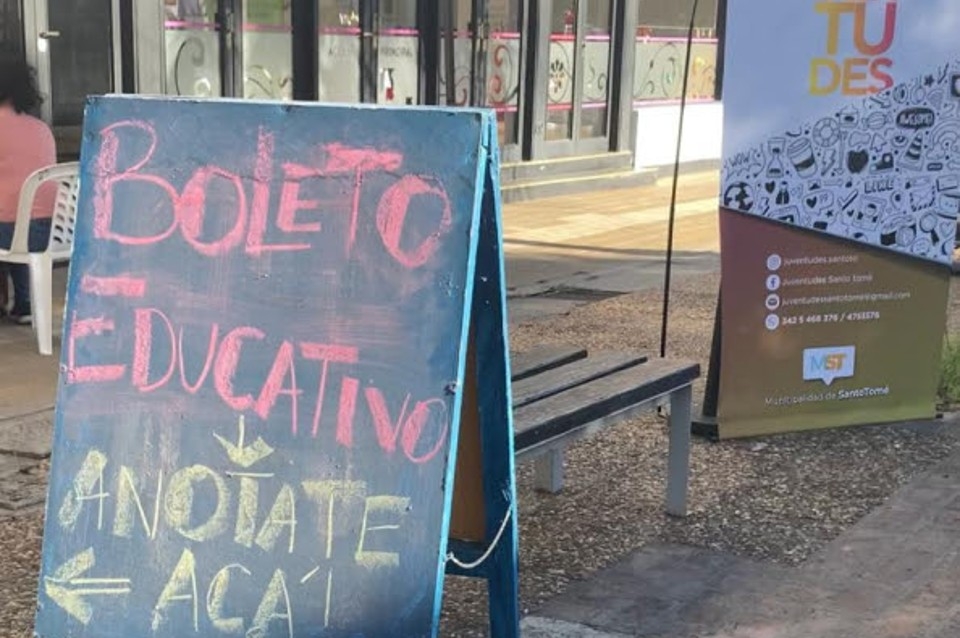 BOLETO
EDUCATIVO
ANOTATE
ACÁ
TU
DES
WOW
AWESOME!
juventudes.santoto
Juventudes Santo tomé
juventudessantotome@gmail.com
342 5 468 376 /
MST
Municipalidad de SantoTomé